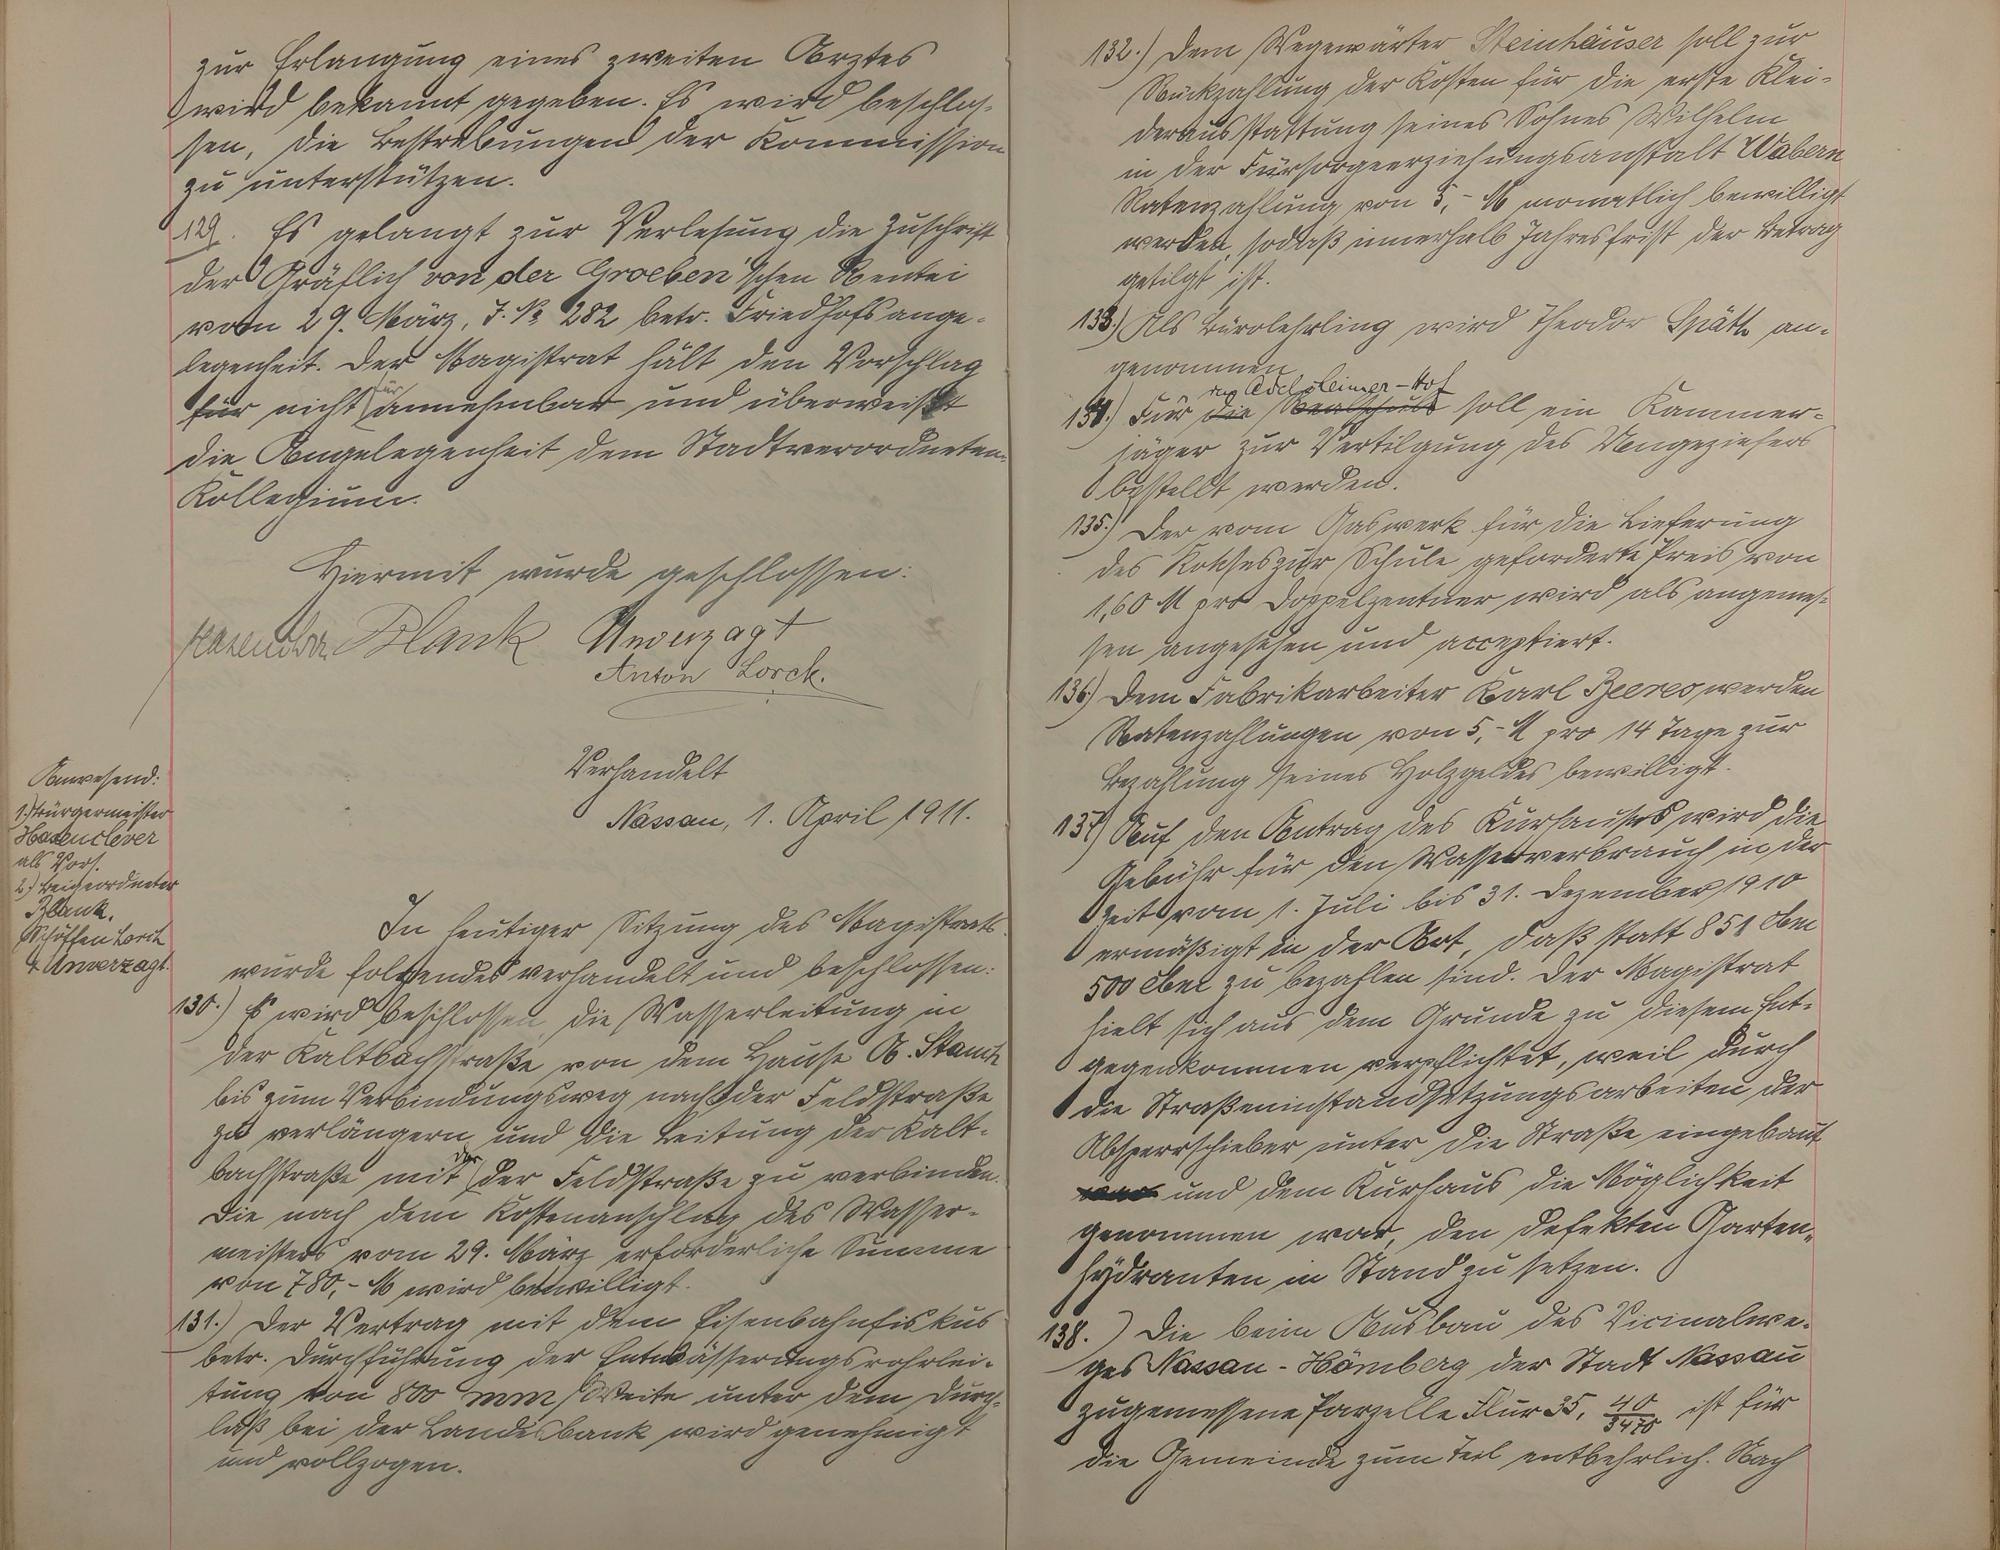 zur Erlangung eines zweiten Arztes
wird bekannt gegeben. Es wird beschlos-
sen, die Bestrebungen der Kommission
zu unterstützen.
129. Es gelangt zur Verlesung die Zuschrift
der Gräflich von der Groeben'schen Rentei
vom 29. März, J. № 282 betr. Friedhofsange-
legenheit. Der Magistrat hält den Vorschlag
für nicht für annehmbar und überweist
die Angelegenheit dem Stadtverordneten-
Kollegium.
Hiermit wurde geschlossen:
Hasenclever Blank Unverzagt
Anton Lorch.
Verhandelt
Nassau, 1. April 1911.
Anwesend:
1.) Bürgermeister
Hasenclever
als Vors.
2.) Beigeordneter
Blank,
Schöffen Lorch
& Unverzagt.
In heutiger Sitzung des Magistrats
wurde folgendes verhandelt und beschlossen:
130.) Es wird beschlossen, die Wasserleitung in
der Kaltbachstraße von dem Hause A. Stauch
bis zum Verbindungsweg nach der Feldstraße
zu verlängern und die Leitung der Kalt-
bachstraße mit der der Feldstraße zu verbinden.
Die nach dem Kostenanschlag des Wasser-
meisters vom 29. März erforderliche Summe
von 780,- M wird bewilligt.
131.) Der Vertrag mit dem Eisenbahnfiskus
betr. Durchführung der Entwässerungsrohrlei-
tung von 800 mm Weite unter dem Durch-
laß bei der Landesbank wird genehmigt
und vollzogen.
132.) Dem Wegewärter Steinhäuser soll zur
Rückzahlung der Kosten für die erste Klei-
derausstattung seines Sohnes Wilhelm
in der Fürsorgeerziehungsanstalt Wabern
Ratenzahlung von 5,- M monatlich bewilligt
werden, sodaß innerhalb Jahresfrist der Betrag
getilgt ist.
133.) Als Bürolehrling wird Theodor Späth an-
genommen.
Adelsheimer-Hof
134.) Für die Realschule soll ein Kammer-
jäger zur Vertilgung des Ungeziefers
bestellt werden.
135.) Der vom Gaswerk für die Lieferung
des Kokses zur Schule geforderte Preis von
1,60 M pro Doppelzentner wird als angemes-
sen angesehen und acceptiert.
136.) Dem Fabrikarbeiter Karl werden
Ratenzahlungen von 5,- M pro 14 Tage zur
Bezahlung seines Holzgeldes bewilligt.
137.) Auf den Antrag des Kurhauses wird die
Gebühr für den Wasserverbrauch in der
Zeit vom 1. Juli bis 31. Dezember 1910
ermäßigt in der Art, daß statt 851 cbm
500 cbm zu bezahlen sind. Der Magistrat
hielt sich aus dem Grunde zu diesem Ent-
gegenkommen verpflichtet, weil durch
die Straßeninstandsetzungsarbeiten der
Absperrschieber unter die Straße eingebaut
und dem Kurhaus die Möglichkeit
genommen war, den defekten Garten-
hydranten in Stand zu setzen.
138.) Die beim Ausbau des Vicinalwe-
ges Nassau-Hömberg der Stadt Nassau
zugemessene Parzelle Flur 35, 40/3470 ist für
die Gemeinde zum Teil entbehrlich. Nach